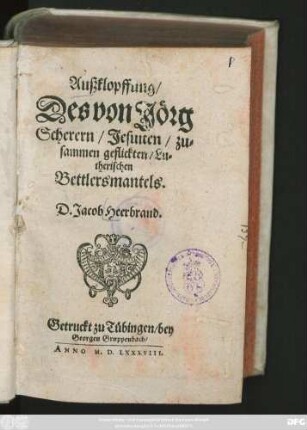 Außklopffung/
Des von Jörg
Scherern/ Jesuiten/ zu-
sammen geflickten/ Lu-
therischen
Bettlersmantels.
D. Jacob Heerbrand.
Getruckt zu Tübingen/ bey
Georgen Gruppenbach/
ANNO M. D. LXXXVIII.